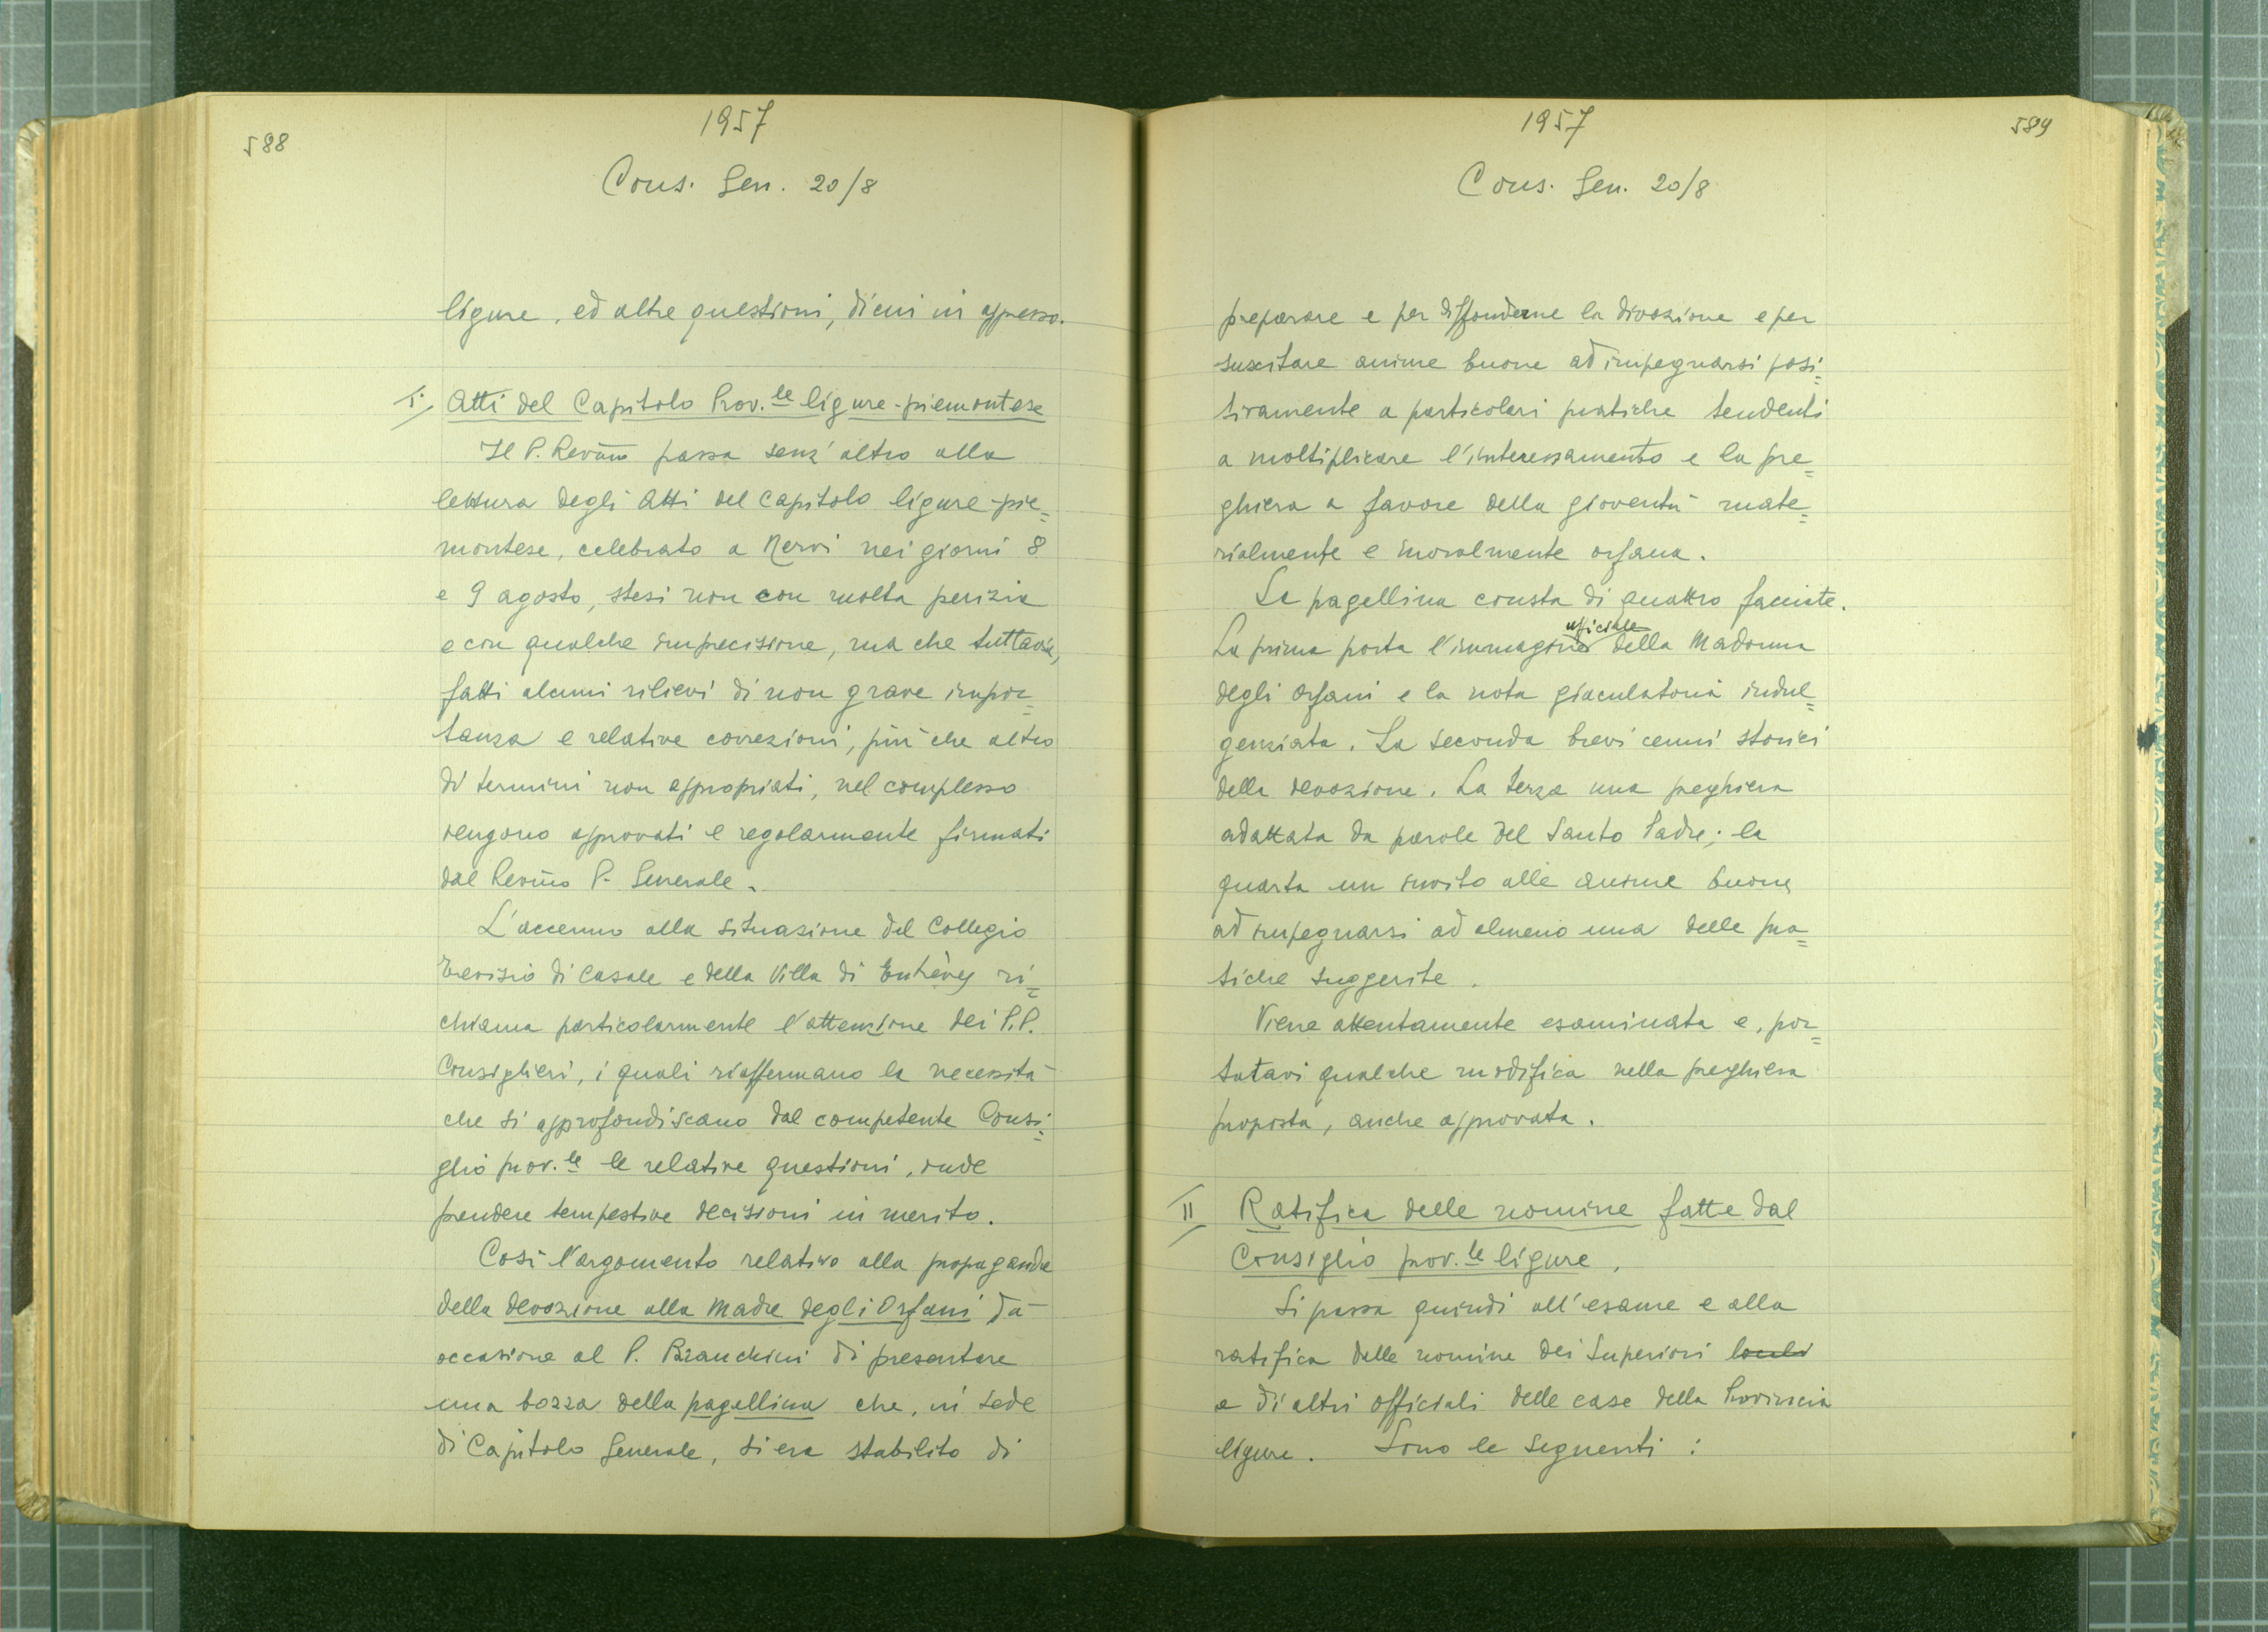 588
1957
Cons. Gen. 20/8
ligure, ed altre questioni, di cui in appresso.
I. Atti del Capitolo Prov.le ligure-piemontese
Il P. Rev.mo passa senz'altro alla
lettura degli Atti del Capitolo ligure-pie=
montese, celebrato a Nervi nei giorni 8
e 9 agosto, stesi non con molta perizia
e con qualche imprecisione, ma che tuttavia,
fatti alcuni rilievi di non grave impor=
tanza e relative correzioni, più che altro
di termini non appropriati, nel complesso
vengono approvati e regolarmente firmati
dal Rev.mo P. Generale.
L'accenno alla situazione del Collegio
Trevisio di Casale e della Villa di Entrèves ri=
chiama particolarmente l'attenzione dei P.P.
Consiglieri, i quali riaffermano la necessità
che si approfondiscano dal competente Consi=
glio prov.le le relative questioni, onde
prendere tempestive decisioni in merito.
Così l'argomento relativo alla propaganda
della devozione alla Madre degli Orfani dà
occasione al P. Bianchini di presentare
una bozza della pagellina che, in sede
di Capitolo Generale, si era stabilito di
1957
589
Cons. Gen. 20/8
preparare e per diffonderne la divozione e per
suscitare anime buone ad impegnarsi posi=
tivamente a particolari pratiche tendenti
a moltiplicare l'interessamento e la pre=
ghiera a favore della gioventù mate=
rialmente e moralmente orfana.
La pagellina consta di quattro facciate.
La prima porta l'immagine ufficiale della Madonna
degli Orfani e la nota giaculatoria indul=
genziata. La seconda brevi cenni storici
della devozione. La terza una preghiera
adattata da parole del Santo Padre; la
quarta un invito alle anime buone
ad impegnarsi ad almeno una delle pra=
tiche suggerite.
Viene attentamente esaminata e, por=
tatavi qualche modifica nella preghiera
proposta, anche approvata.
II Ratifica delle nomine fatte dal
Consiglio prov.le ligure.
Si passa quindi all'esame e alla
ratifica delle nomine dei Superiori locali
e di altri officiali delle case della Provincia
ligure. Sono le seguenti: